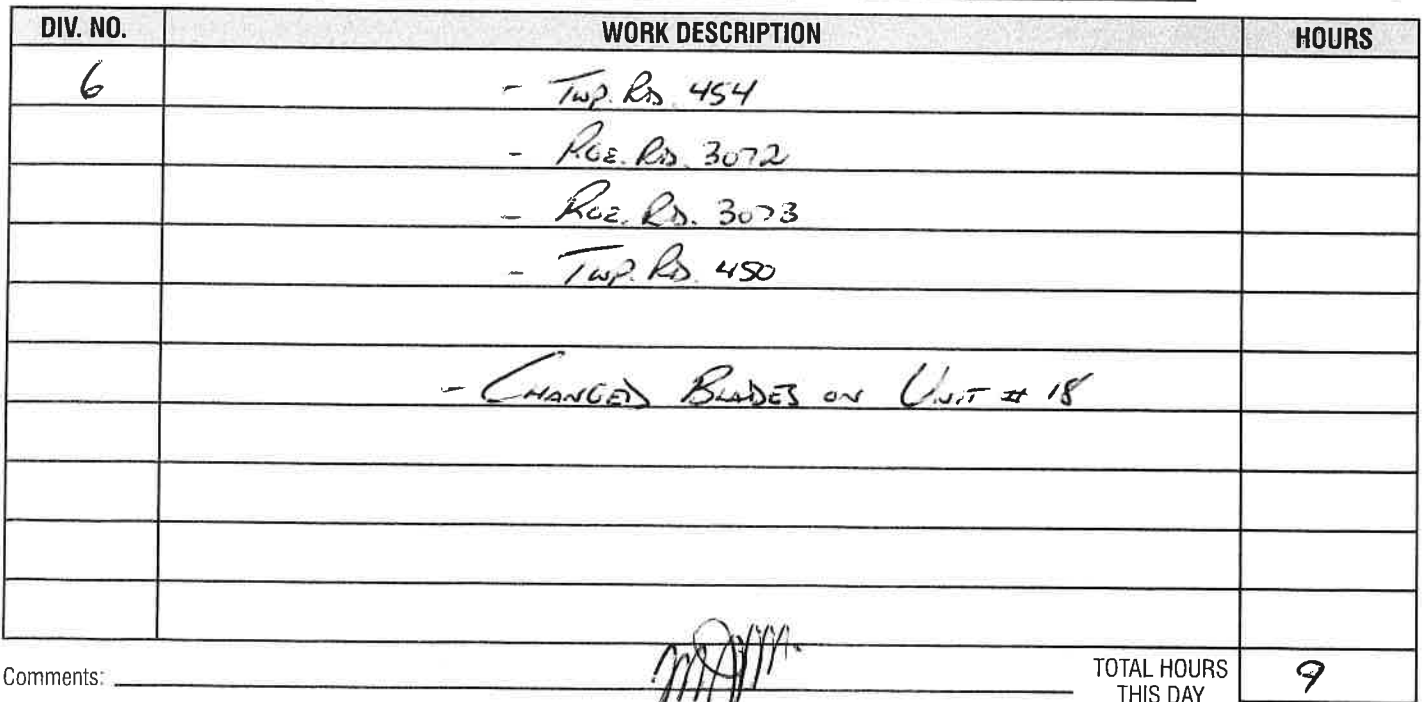 DIV. NO. WORK DESCRIPTION HOURS
6 - Twp. Rd. 454
- RGE. RD. 3072
- RGE. RD. 3073
- Twp. Rd. 450
- CHANGED BLADES ON UNIT # 18
Comments: TOTAL HOURS 9
THIS DAY